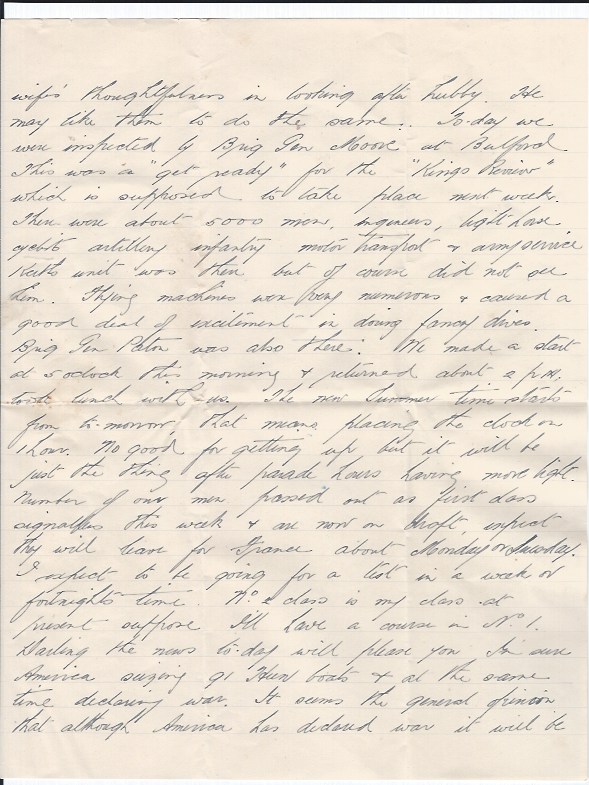 wife's thoughtfulness in looking after hubby. He
may like them to do the same. To-day we
were inspected by Brig Gen Moore at Bulford
This was a "get ready" for the "Kings Review"
which is supposed to take place next week.
There were about 5000 men, engineers, light horse
cyclists artillery infantry motor transport & army service
Keith's unit was there but of course did not see
him. Flying machines were very numerous & caused a
good deal of excitement in doing fancy dives.
Brig Gen Paton was also there. We made a start
at 5 oclock this morning & returned about 2 p.m,
took lunch with us. The new Summer time starts
from to-morrow, that means placing the clock on
1 hour. No good for getting up but it will be
just the thing after parade hours having more light.
Number of our men passed out as first class
signallers this week & are now on draft, expect
they will leave for France about Monday or Tuesday.
I expect to be going for a test in a week or
fortnights time. No 2 class is my class at
present suppose I'll have a course in No 1.
Darling the news to-day will please you I'm sure
America seizing 91 Hun boats & at the same
time declaring war. It seems the general opinion
that although America has declared war it will be